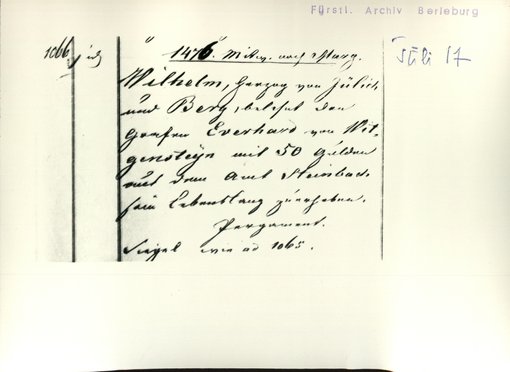 Fürstl. Archiv Berleburg
Jüli 17
1066
" 1476. Mittw. nach Marg. "
Wilhelm, Herzog von Jülich
und Berg, belehnt den
Grafen Everhard von Wit-
gensteÿn mit 50 Gulden
aus dem Amt Steinbach
sein Lebenslang zu erheben.
Pergament.
Siegel wie ad 1065.